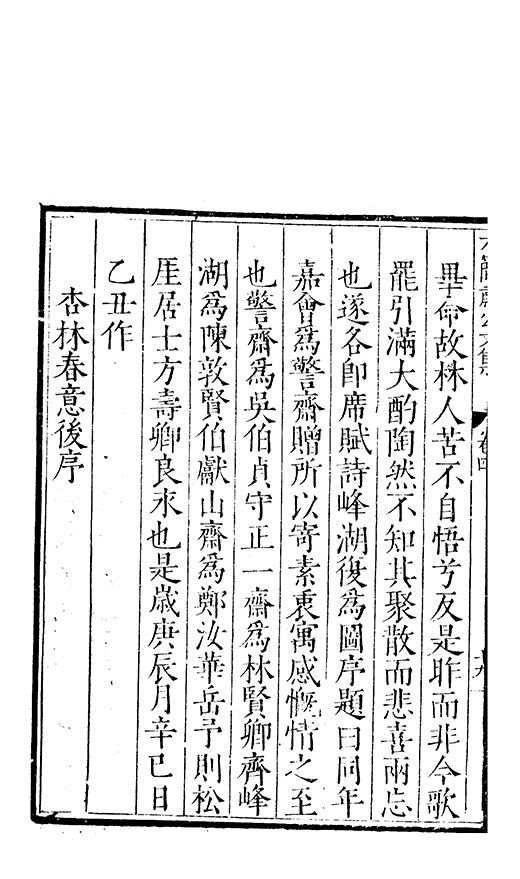 畢命故林人苦不自悟兮反是昨而非今歌
罷引滿大酌陶然不知其聚散而悲喜兩忘
也遂各即席賦詩峰湖復爲圖序題曰同年
嘉會爲警齋贈所以寄素衷寓感慨情之至
也警齋爲吳伯貞守正一齋爲林賢卿齊峰
湖爲陳敦賢伯獻山齋爲鄭汝華岳予則松
厓居士方壽卿良永也是歲庚辰月辛巳日
乙丑作
杏林春意後序